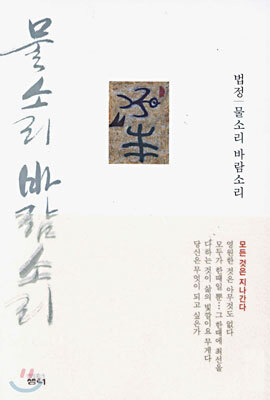 물소리 바람소리
법정|물소리 바람소리
모든 것은 지나간다
영원한 것은 아무것도 없다
모두가 한때일 뿐… 그 한때에 최선을
다하는 것이 삶의 빛깔이요 무게다
당신은 무엇이 되고 싶은가
샘터